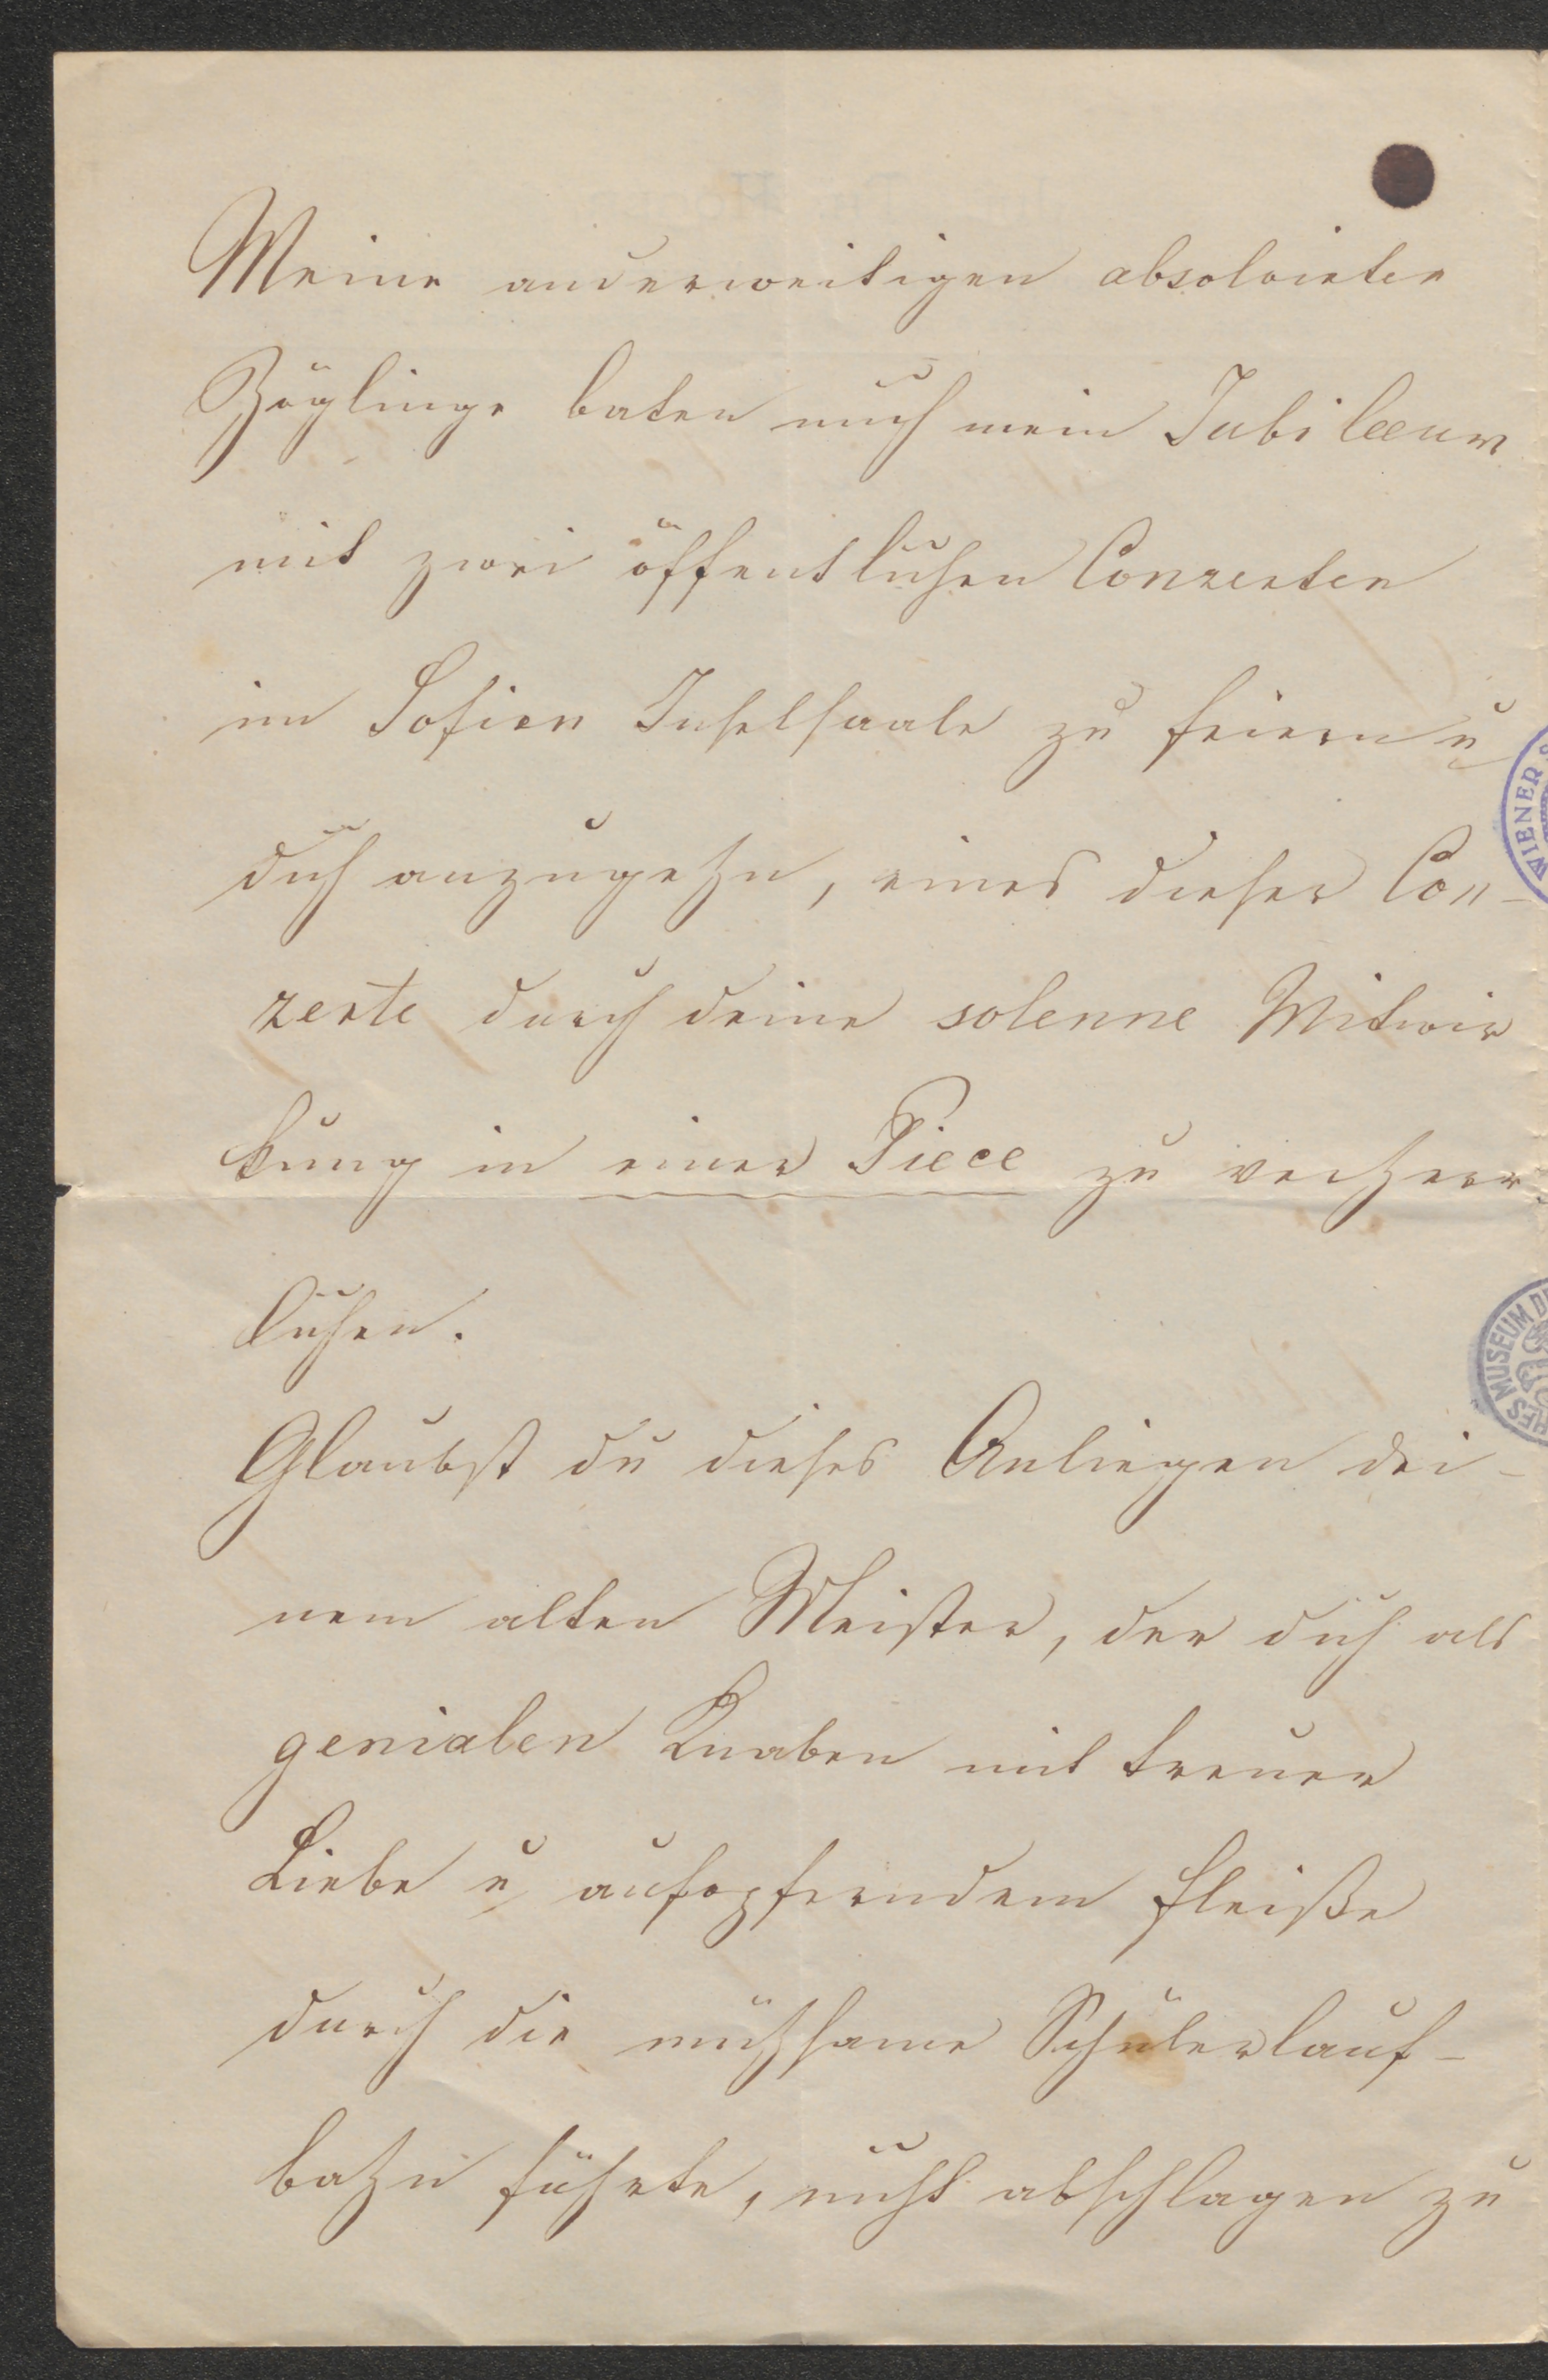 Meine anderweitigen absolvirten
Zöglinge baten mich mein Jubilaeum
mit zwei öffentlichen Conzerten
im Sofien Inselsaale zu feiern u
dich anzugehn, eines dieser Con-
zerte durch deine solenne Mitwir
kung in einer Piece zu verherr
lichen.
Glaubst du dieses Anliegen dei-
nem alten Meister, der dich als
genialen Knaben mit treuer
Liebe u aufopferndem Fleiße
durch die mühsame Schülerlauf-
bahn führte, nicht abschlagen zu
WIENER
MUSEUM